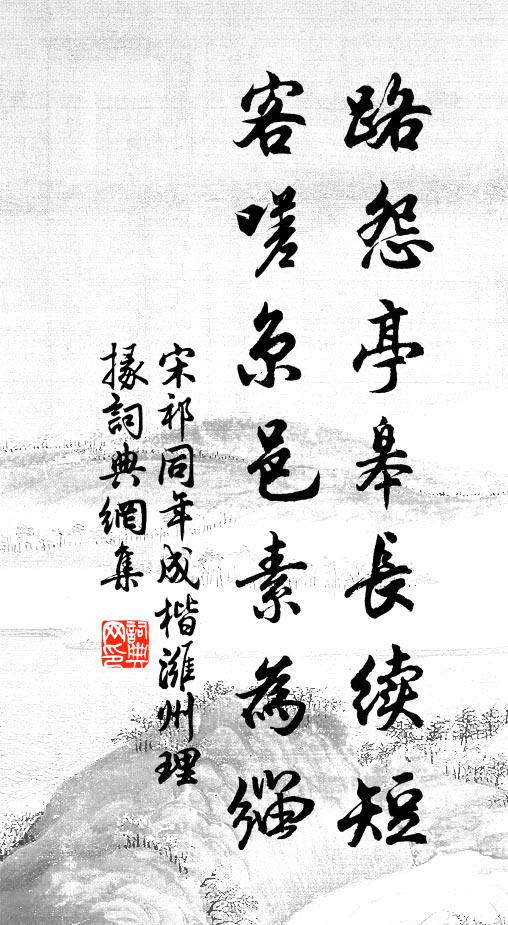 路怨亭皋長續短
客嗟京邑素為緇
宋祁同年成楷濰州理
掾詞典網集
詞典
网印